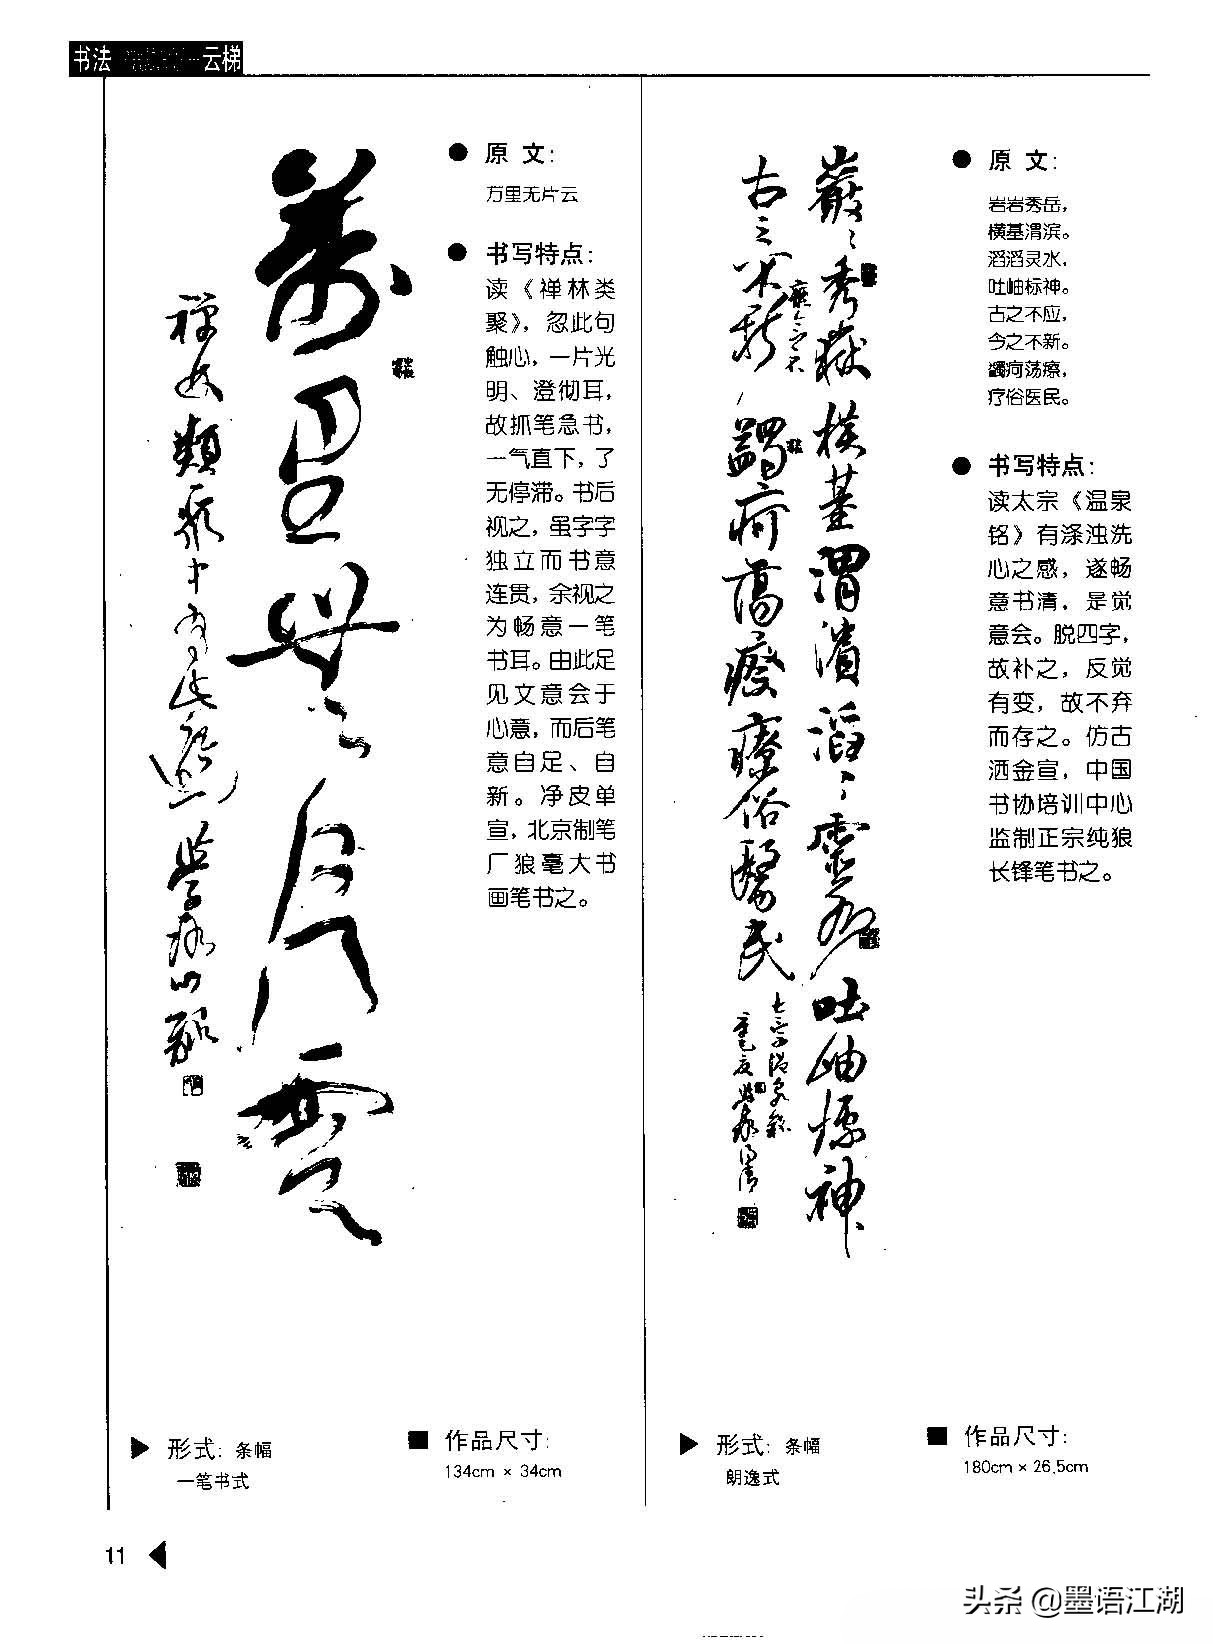 书法
云梯
萬里無片雲
禅林類聚中有此語
● 原 文：
万里无片云
● 书写特点：
读《禅林类
聚》，忽此句
触心，一片光
明、澄彻耳，
故抓笔急书，
一气直下，了
无停滞。书后
视之，虽字字
独立而书意
连贯，余视之
为畅意一笔
书耳。由此足
见文意会于
心意，而后笔
意自足、自
新。净皮单
宣，北京制笔
厂狼毫大书
画笔书之。
▶ 形式：条幅
一笔书式
■ 作品尺寸：
134cm × 34cm
巖〻秀嶽横基渭濱滔〻靈水吐岫標神
古之不新
應今之不
蠲痾蕩瘵療俗醫民
● 原 文：
岩岩秀岳，
横基渭滨。
滔滔灵水，
吐岫标神。
古之不应，
今之不新。
蠲疴荡瘵，
疗俗医民。
● 书写特点：
读太宗《温泉
铭》有涤浊洗
心之感，遂畅
意书清，是觉
意会。脱四字，
故补之，反觉
有变，故不弃
而存之。仿古
洒金宣，中国
书协培训中心
监制正宗纯狼
长锋笔书之。
▶ 形式：条幅
朗逸式
■ 作品尺寸：
180cm × 26.5cm
11 ◀
头条 @墨语江湖